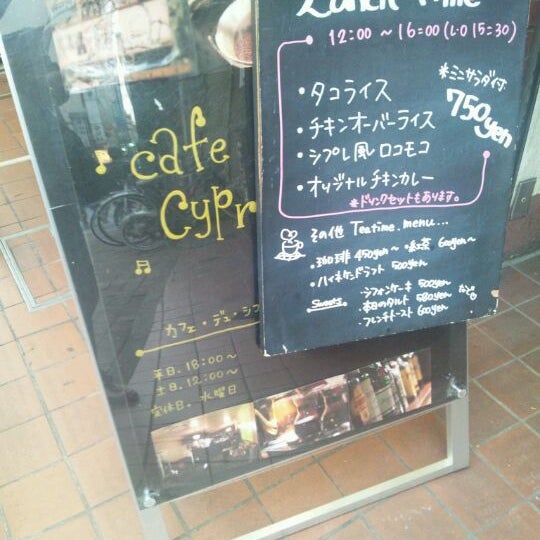 Lunch Time
12:00 〜 16:00 (L.O 15:30)
*ミニサラダ付
750yen
・タコライス
・チキンオーバーライス
・シプレ風ロコモコ
・オリジナルチキンカレー
*ドリンクセットもあります。
その他 Teatime.menu...
・珈琲 450yen〜 ・紅茶 600yen〜
・ハイネケンドラフト 500yen
Sweets
・シフォンケーキ 500yen
・本日のタルト 580yen
・フレンチトースト 600yen
など
cafe
Cypr
カフェ・デュ・シプ
平日. 18:00〜
土日. 12:00〜
定休日. 水曜日